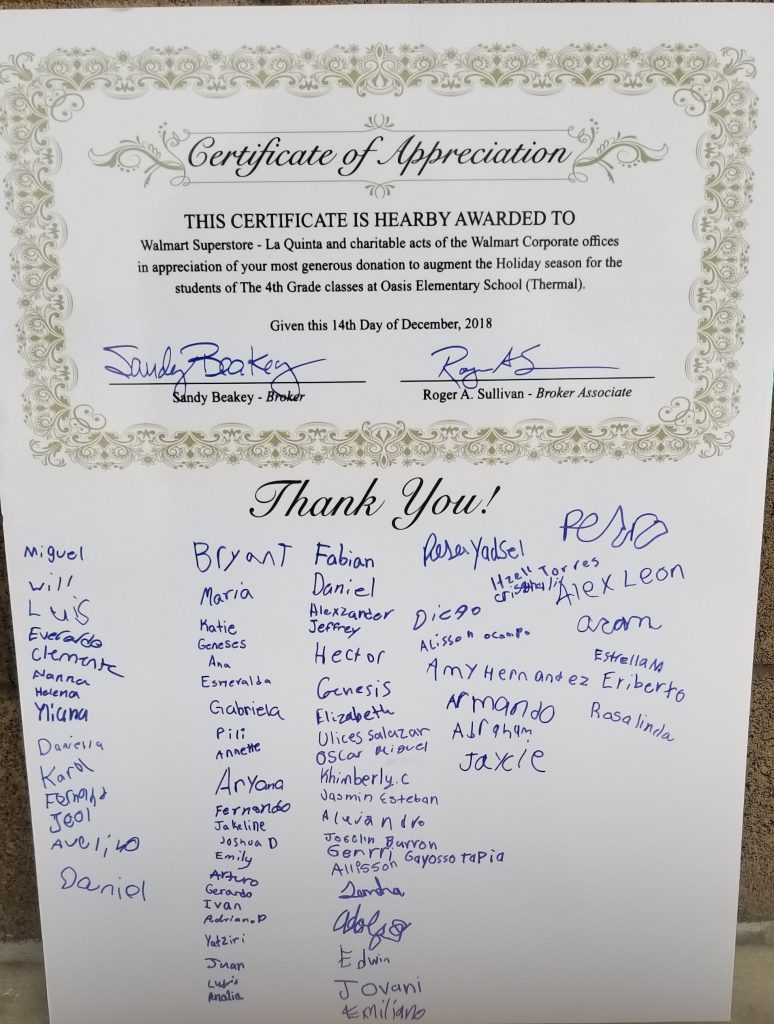 Certificate of Appreciation
THIS CERTIFICATE IS HEARBY AWARDED TO
Walmart Superstore - La Quinta and charitable acts of the Walmart Corporate offices
in appreciation of your most generous donation to augment the Holiday season for the
students of The 4th Grade classes at Oasis Elementary School (Thermal).
Given this 14th Day of December, 2018
Sandy Beakey
Sandy Beakey - Broker
Roger A. Sullivan - Broker Associate
Thank You!
Miguel
will
Luis
Everardo
Clemente
Nanna
Helena
Yliana
Daniella
Karol
Fernand
Jeol
Avelino
Daniel
Bryant
Maria
Katie
Geneses
Ana
Esmeralda
Gabriela
Pili
Annette
Aryana
Fernando
Jakeline
Joshua D
Emily
Arturo
Gerardo
Ivan
Adriano P
Yatziri
Juan
Luris
Analia
Fabian
Daniel
Alexzander
Jeffrey
Hector
Genesis
Elizabeth
Ulices Salazar
Oscar Miguel
Khimberly.c
Jasmin Esteban
Joselin Barron
Genrri Gayosso tapia
Allisson
Sandra
Adolfo
Edwin
Jovani
Emiliano
Yadsel
Itzell Torres
Diego
Alisson ocampo
Amy Hernandez
Armando
Abraham
Jaycie
Pedro
Alex Leon
aram
Estrella M
Eriberto
Rosalinda